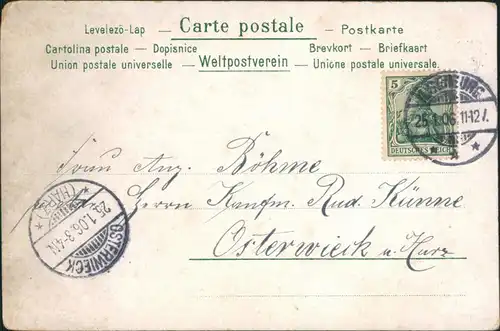 Levelező-Lap — Carte postale — Postkarte
Cartolina postale — Dopisnice Brevkort — Briefkaart
Union postale universelle — Weltpostverein — Unione postale universale.
5
DEUTSCHES REICH
25.1.06.11-12V.
Frau Aug. Böhme
Herrn Kaufm. Rud. Künne
Osterwieck a. Harz
OSTERWIECK
25.1.06.3-4N.
(HARZ)